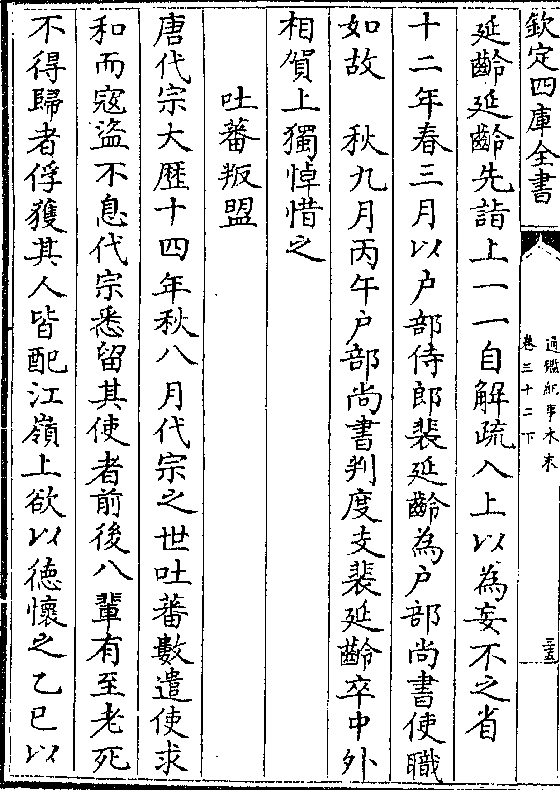 欽定四庫全書
通鑑紀事本末
卷三十二下
三五
延齡延齡先詣上一一自解疏入上以為妄不之省
十二年春三月以户部侍郎裴延齡為户部尚書使職
如故　秋九月丙午户部尚書判度支裴延齡卒中外
相賀上獨悼惜之
吐蕃叛盟
唐代宗大歴十四年秋八月代宗之世吐蕃數遣使求
和而寇盜不息代宗悉留其使者前後八輩有至老死
不得歸者俘獲其人皆配江嶺上欲以德懷之乙巳以